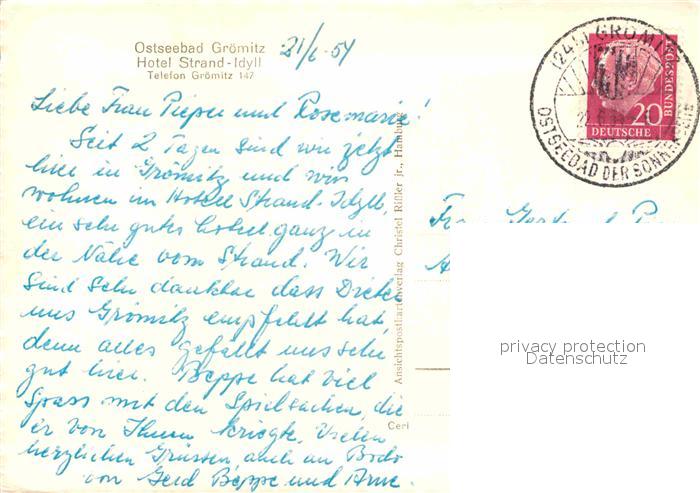 Ostseebad Grömitz
Hotel Strand-Idyll
Telefon Grömitz 147
21/6-54
Liebe Frau Pieper und Rosemarie!
Seit 2 Tagen sind wir jetzt
hier in Grömitz und wir
wohnen im Hotel Strand-Idyll,
ein sehr gutes hotel ganz in
der Nähe vom Strand. Wir
sind sehr dankbar dass Dieter
uns Grömitz empfehlt hat,
denn alles gefällt uns sehr
gut hier. Beppe hat viel
Spass mit den Spielsachen, die
er von Ihnen kriegte. Vielen
herzlichen Grüssen auch an Bodo
von Gerd Beppe und Arne.
Ansichtspostkartenverlag Christel Rißler jr., Hamburg
Ceri
(24b) GRÖMITZ
OSTSEEBAD DER SONNENSEITE
DEUTSCHE
BUNDESPOST
20
Frau
privacy protection
Datenschutz